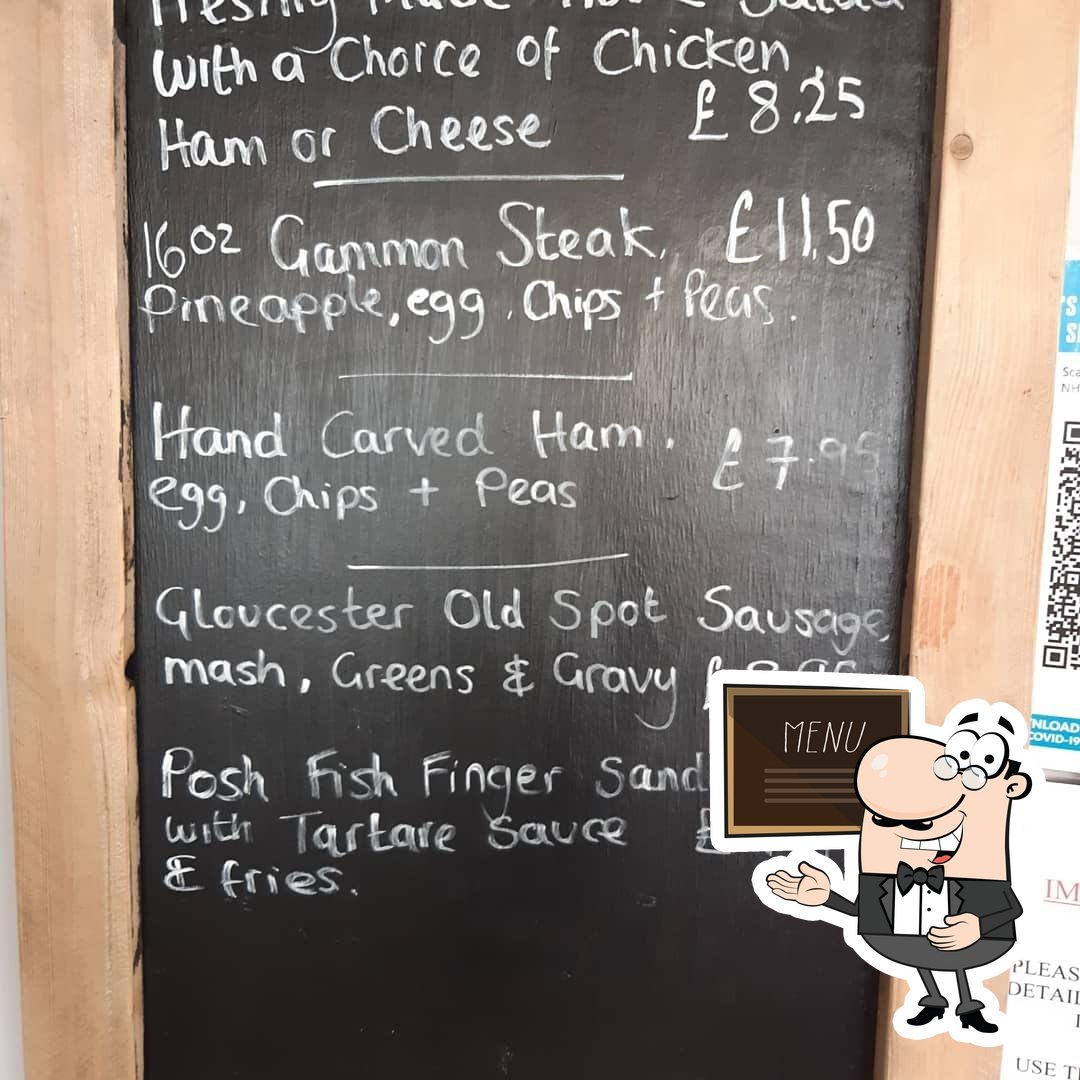 Freshly Made
With a Choice of Chicken
Ham or Cheese £8.25
16oz Gammon Steak, £11.50
Pineapple, egg, Chips + Peas.
Hand Carved Ham, £7.95
egg, Chips + Peas
Gloucester Old Spot Sausage,
mash, Greens & Gravy
Posh Fish Finger Sand
with Tartare Sauce £
& fries.
MENU
IM
PLEAS
DETAIL
USE T
NLOAD
COVID-19